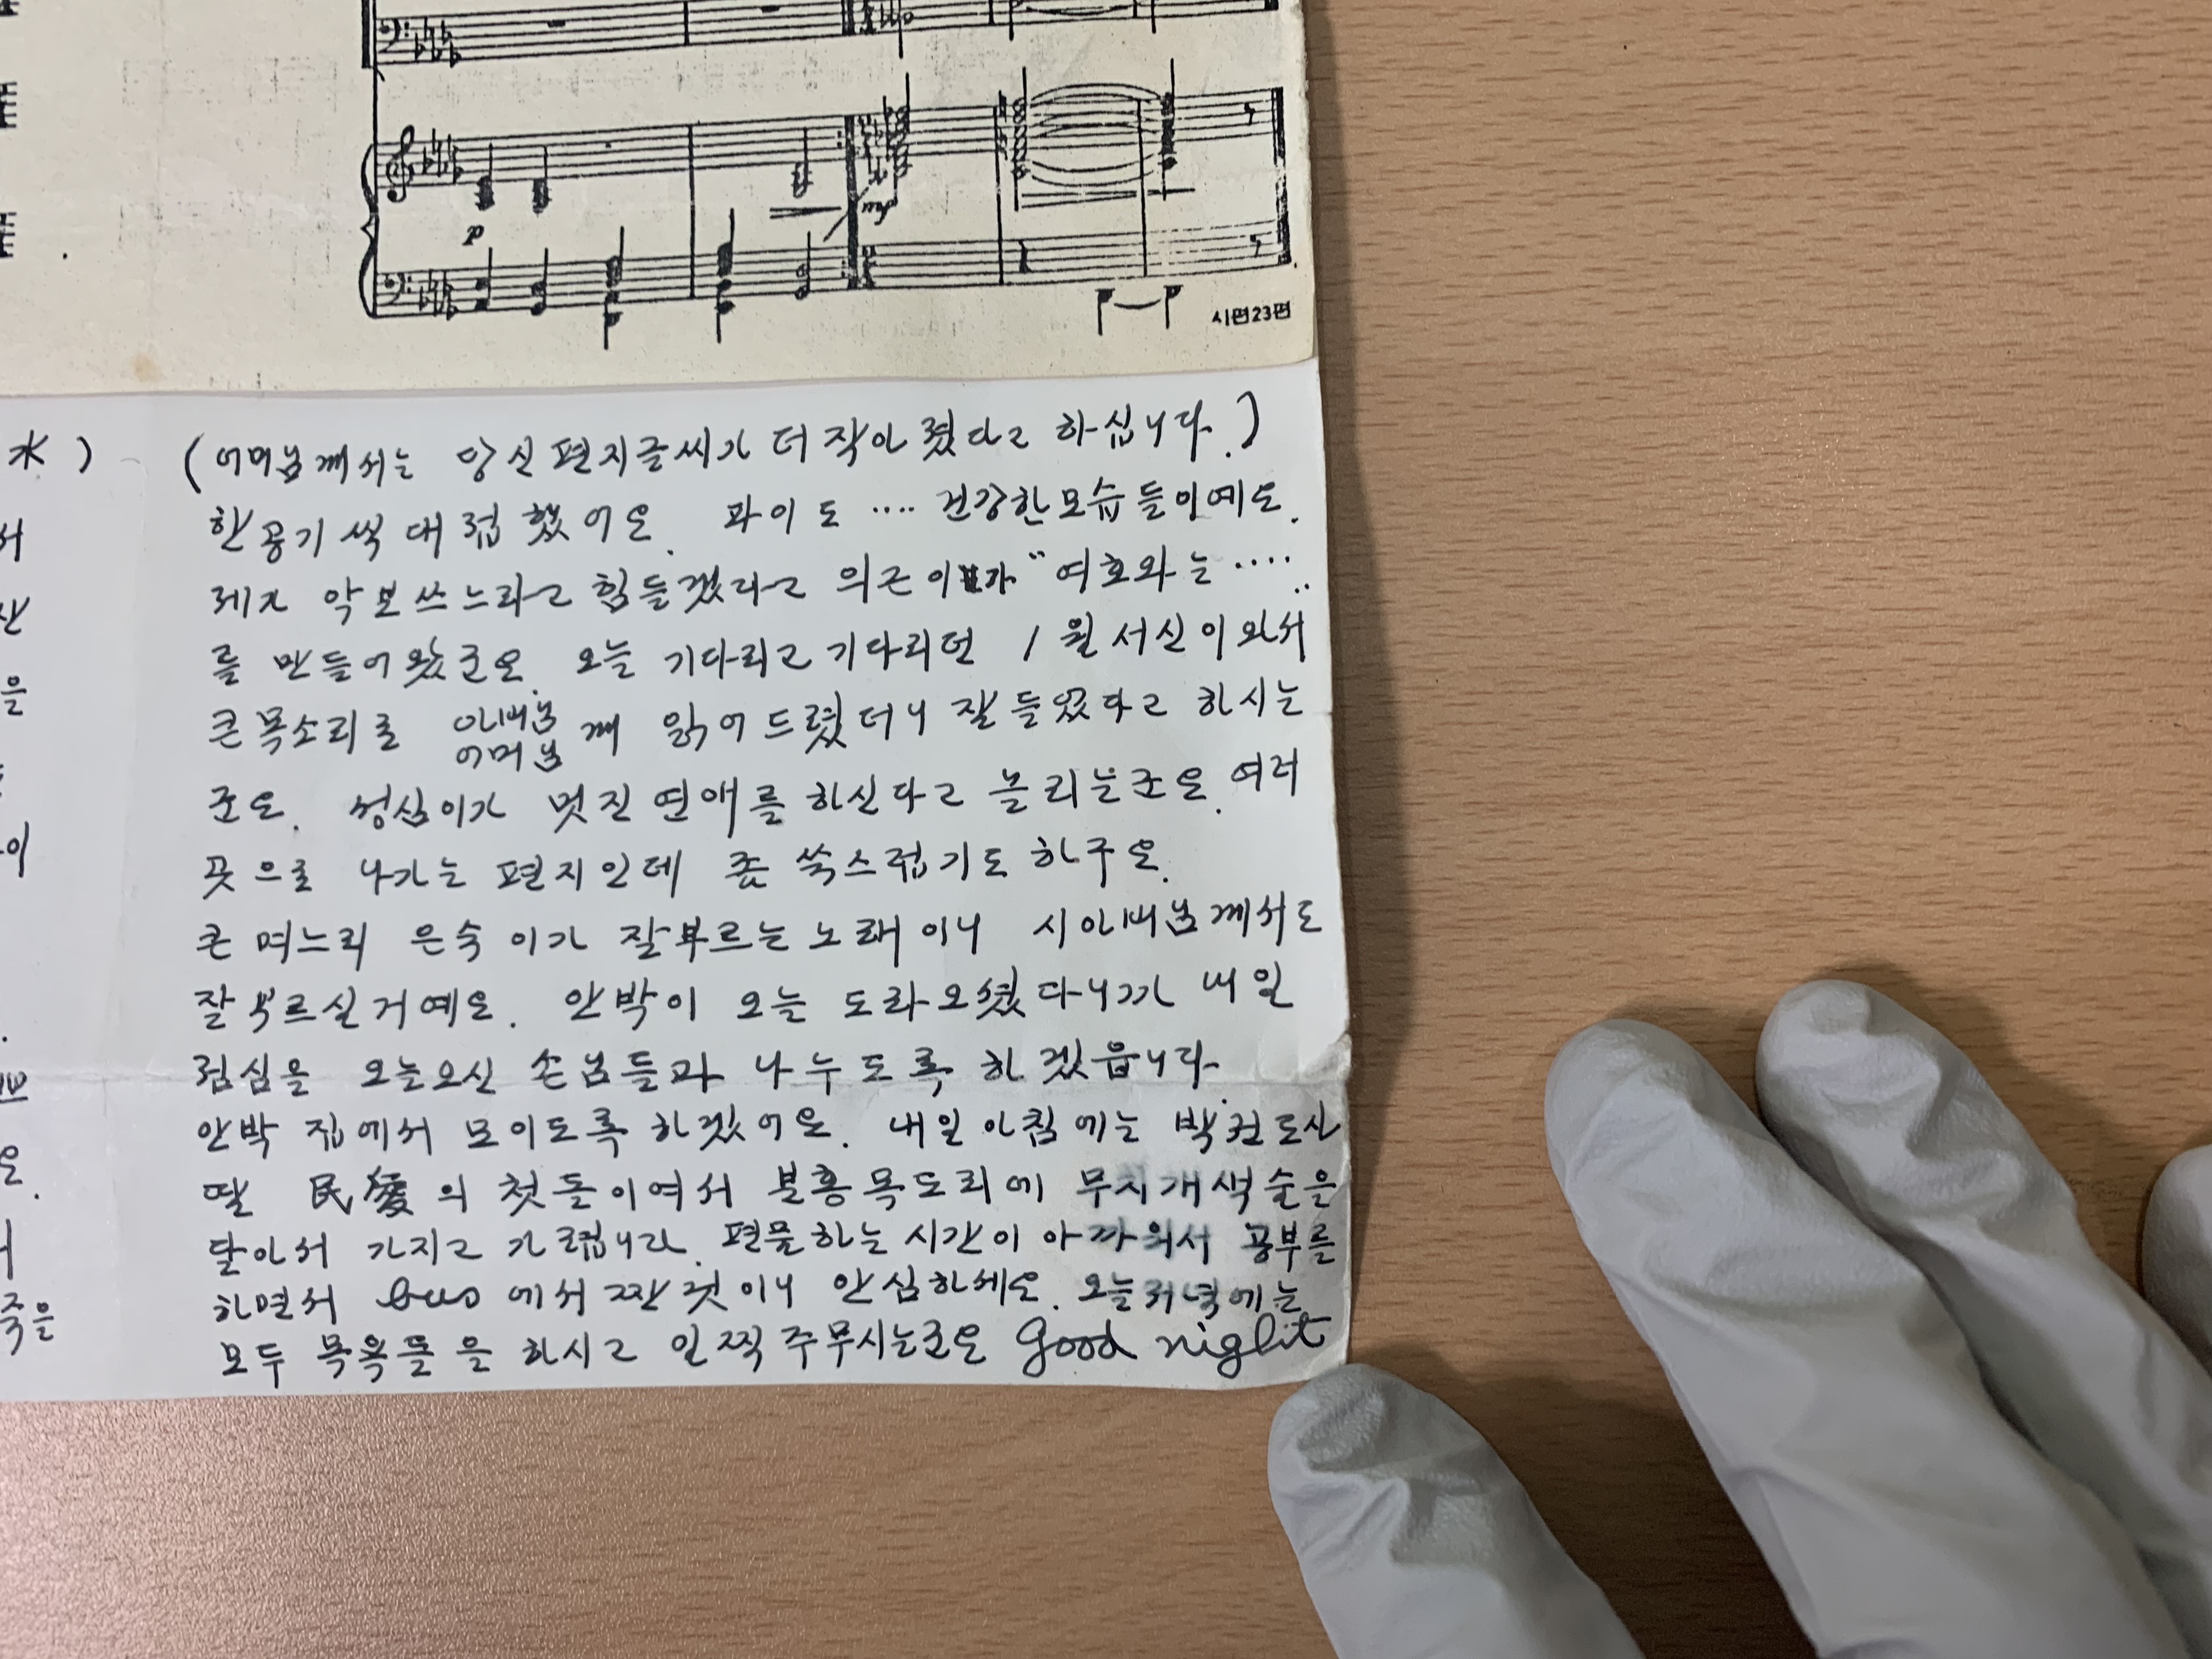 시편23편
水 )
(어머님께서는 당신 편지글씨가 더 작아졌다고 하십니다.)
한 공기씩 대접했어요. 파이도 .... 건강한 모습들이예요.
제가 악보쓰느라고 힘들겠다고 의근이가 "여호와는 ....."
를 만들어 왔군요. 오늘 기다리고 기다리던 1월 서신이 와서
큰 목소리로 아버님 어머님 께 읽어 드렸더니 잘 들었다고 하시는
군요. 성심이가 멋진 연애를 하신다고 놀리는군요. 여러
곳으로 나가는 편지인데 좀 쑥스럽기도 하구요.
큰 며느리 은숙이가 잘 부르는 노래이니 시아버님께서도
잘 부르실거예요. 안박이 오늘 도라오셨다니까 내일
점심을 오늘오신 손님들과 나누도록 하겠읍니다.
안박 집에서 모이도록 하겠어요. 내일 아침에는 박컨도산
딸 民愛의 첫돌이여서 분홍 목도리에 무지개색 술을
달아서 가지고 가렵니다. 편물하는 시간이 아까워서 공부를
하면서 bus에서 짠 것이니 안심하세요. 오늘저녁에는
모두 목욕들을 하시고 일찍 주무시는군요 Good night
서
산
을
이
요.
죽을